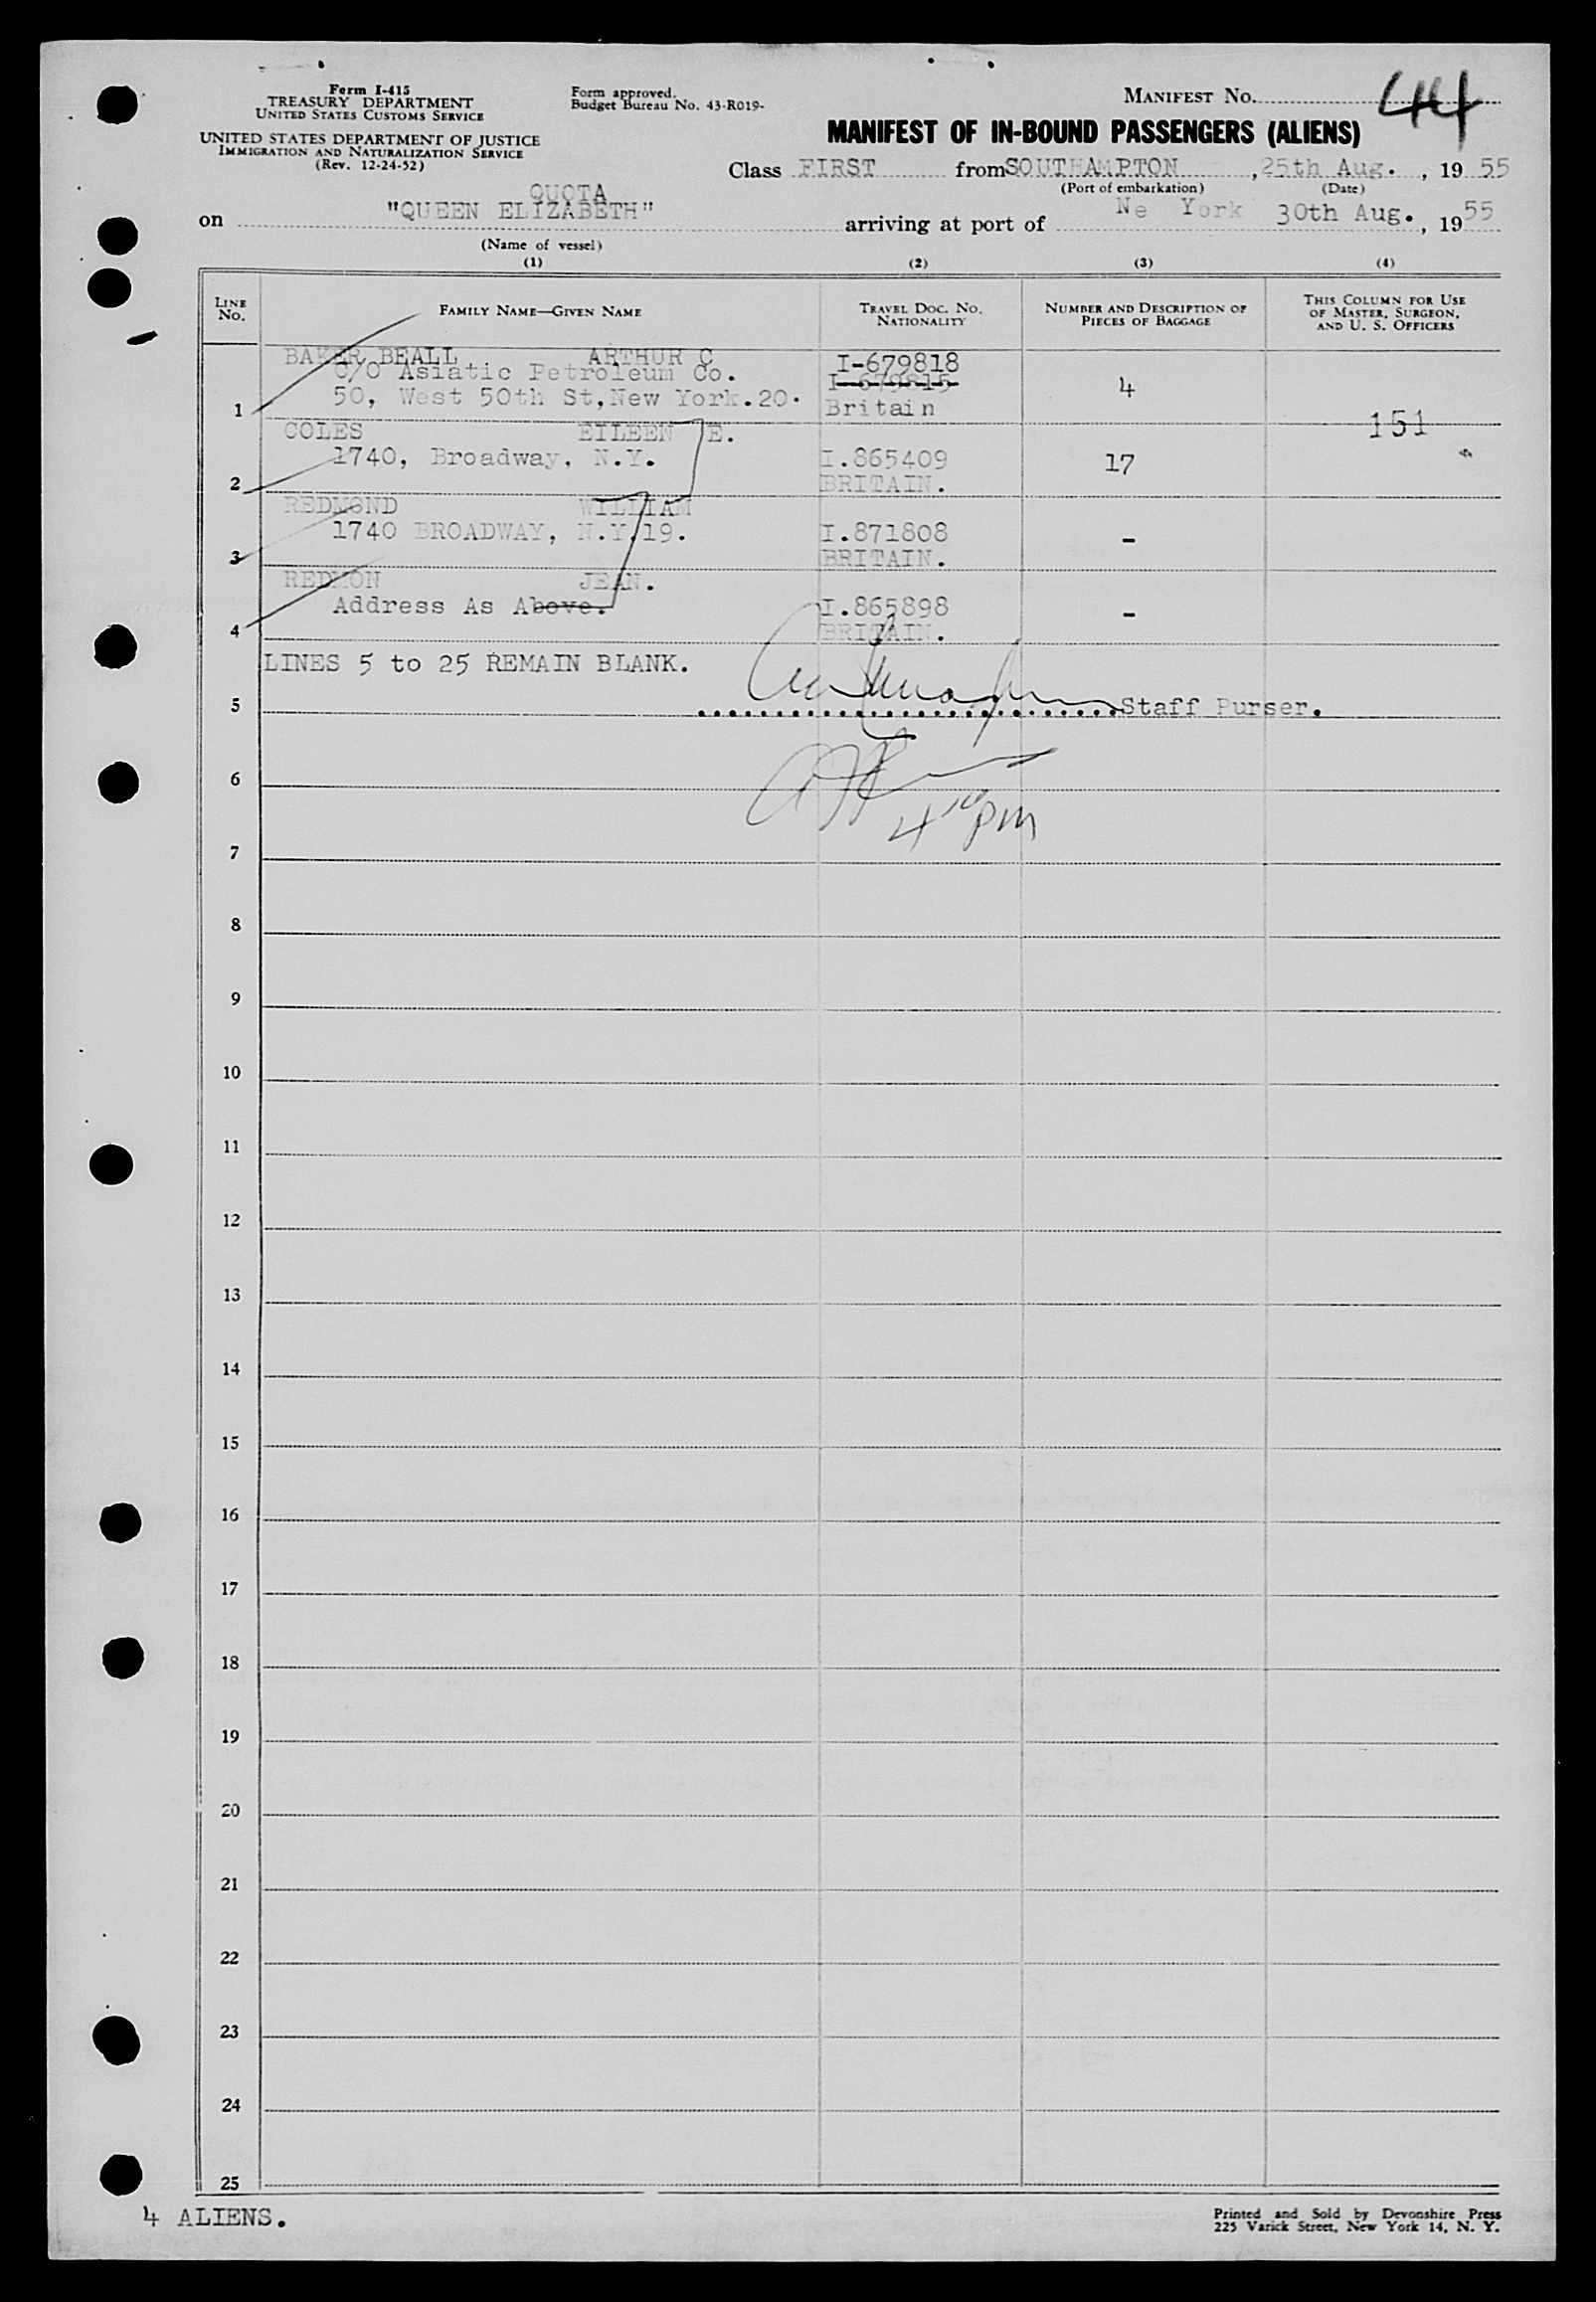 Form I-415
TREASURY DEPARTMENT
UNITED STATES CUSTOMS SERVICE
UNITED STATES DEPARTMENT OF JUSTICE
IMMIGRATION AND NATURALIZATION SERVICE
(Rev. 12-24-52)
Form approved.
Budget Bureau No. 43-R019-
MANIFEST No.
MANIFEST OF IN-BOUND PASSENGERS (ALIENS)
Class FIRST from SOUTHAMPTON, 25th Aug., 19 55
(Port of embarkation) (Date)
QUOTA
on "QUEEN ELIZABETH" arriving at port of Ne York 30th Aug., 19 55
(Name of vessel)
(1) (2) (3) (4)
LINE No. FAMILY NAME—GIVEN NAME TRAVEL DOC. No. NATIONALITY NUMBER AND DESCRIPTION OF PIECES OF BAGGAGE THIS COLUMN FOR USE OF MASTER, SURGEON, AND U. S. OFFICERS
BAKER BEALL ARTHUR C I-679818
C/O Asiatic Petroleum Co. I-679815 4
50, West 50th St, New York. 20. Britain
1 151
COLES EILEEN E.
1740, Broadway, N.Y. I.865409 17
2 BRITAIN.
REDMOND WILLIAM
1740 BROADWAY, N.Y.19. I.871808 -
3 BRITAIN.
REDMON JEAN.
Address As Above. I.865898 -
4 BRITAIN.
LINES 5 to 25 REMAIN BLANK.
5 Staff Purser.
6
4 10 PM
7
8
9
10
11
12
13
14
15
16
17
18
19
20
21
22
23
24
25
4 ALIENS.
Printed and Sold by Devonshire Press
225 Varick Street, New York 14, N. Y.